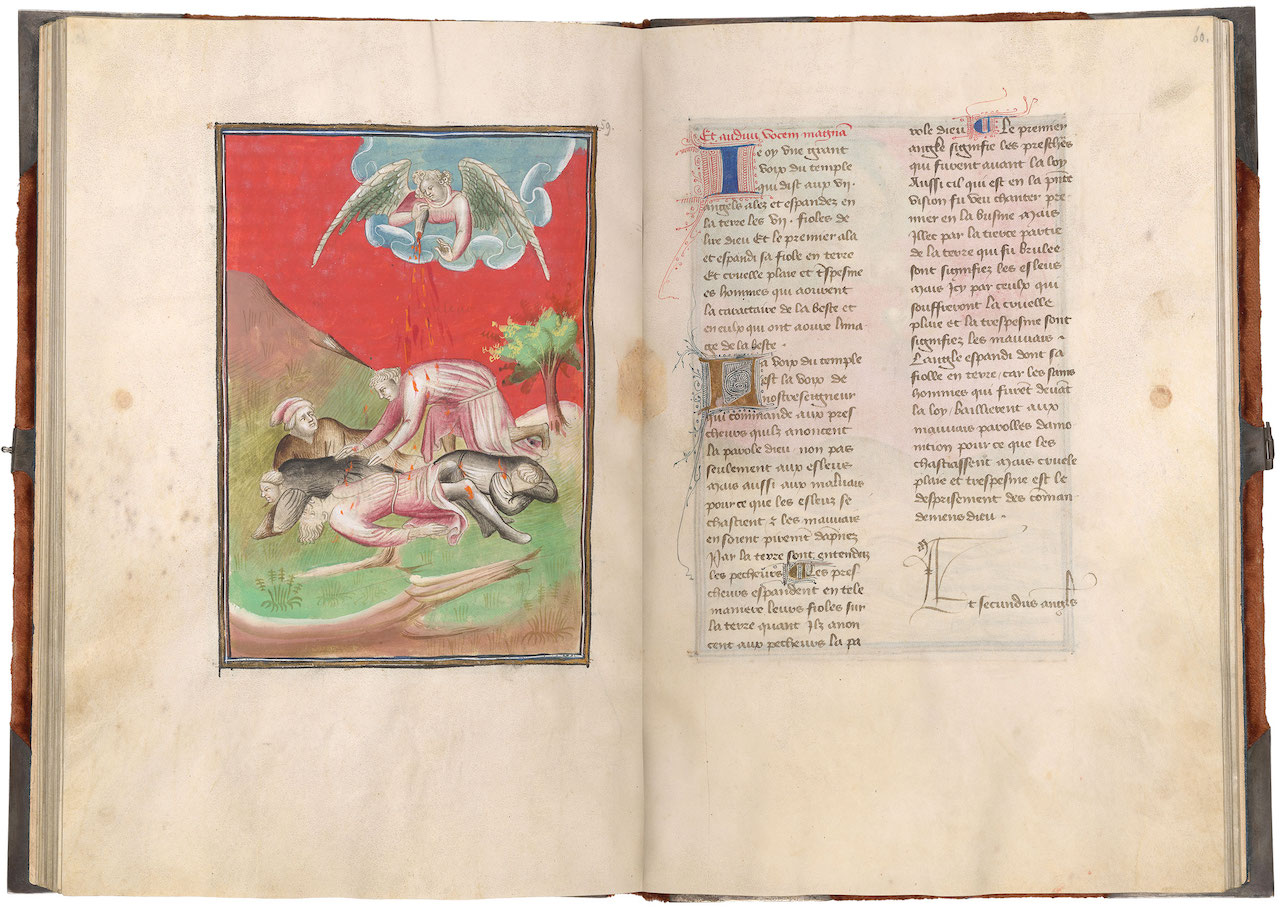 59.
60.
Et audivi vocem magnā
Ie oy vne grant
voix du temple
qui dist aux vii.
angels alez et espandez en
la terre les vii. fioles de
lire dieu Et le premier ala
et espandi sa fiole en terre
Et cruelle plaie et tspesme
es hommes qui avoient
la caractaire de la beste et
en eulx qui ont aoure lima
ge de la beste.
La voix du temple
est la voix de
nostreseigneur
qui commande aux pres
cheurs quilz anoncent
la parole dieu non pas
seulement aux esleus
Mais aussi aux maluais
pource que les esleuz se
chastient & les mauuais
ensoient
Par la terre sont entenduz
les pecheurs Les pres
cheurs espandent en tele
maniere leurs fioles sur
la terre quant Ilz anon
cent aux pecheurs la pa
role dieu Le premier
angle signifie les presches
qui furent auant la loy
Aussi cil qui est en la pnte
vision fu veu chanter pre
mier en la busine Mais
Illec par la tierce partie
de la terre qui fu brulee
sont signifiez les esleus
Mais Icy par ceulx qui
souffreront la cruelle
plaie et la trespesme sont
signifiez les mauuais.
Langle espandi dont sa
fiolle en terre/car les sains
hommes qui furēt deuāt
la loy/baillerent aux
mauuais parolles damo
nition pource que les
chastiassent Mais cruele
plaie et trespesme est le
desprisement des coman
demens dieu.
Et secundus angls